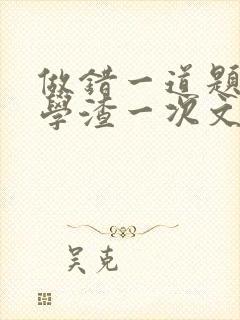 做错一道题
學渣一次文
吴克